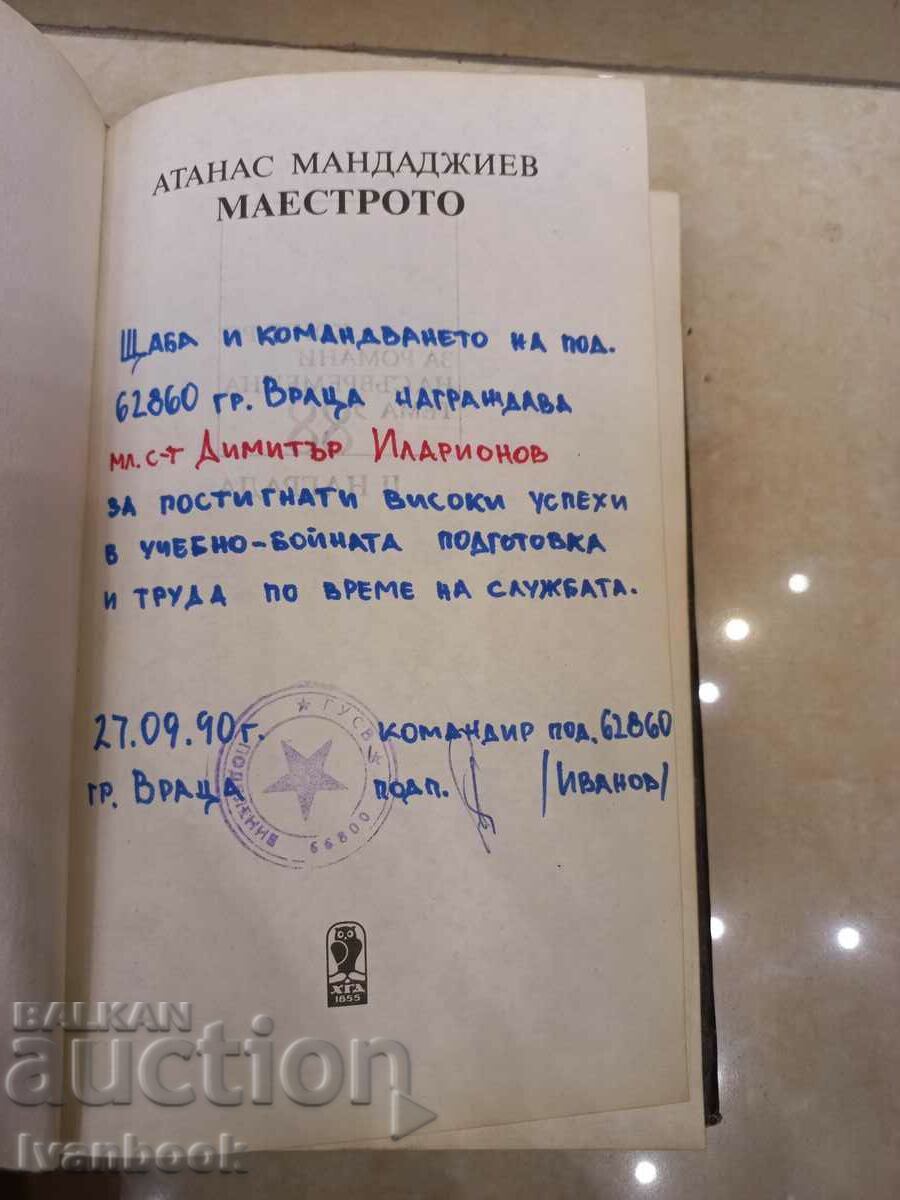 АТАНАС МАНДАДЖИЕВ
МАЕСТРОТО
ЗА РОМАНИ
НА СЪВРЕМЕННА
ТЕМА
88
II НАГРАДА
Щаба и командването на под.
62860 гр. Враца награждава
мл. с-т Димитър Иларионов
за постигнати високи успехи
в учебно-бойната подготовка
и труда по време на службата.
27.09.90г. командир под. 62860
гр. Враца подп. /Иванов/
★ ГУСВ ★
66800
ХГД
1855
BALKAN
auction
Ivanbook